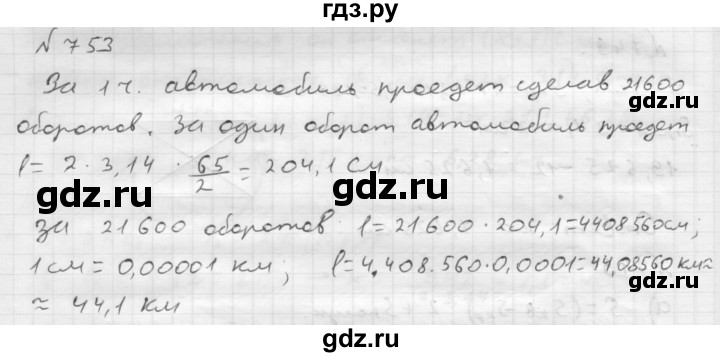 гдз.ру
№ 753
За 1 ч. автомобиль проедет сделав 21600
оборотов. За один оборот автомобиль проедет
l = 2 · 3,14 · 65/2 = 204,1 см
gdz.ru gdz.ru
За 21600 оборотов l = 21600 · 204,1 = 4408560 см;
1 см = 0,00001 км; l = 4.408.560 · 0,0001 = 44,08560 км ≈
gdz.ru gdz.ru
≈ 44,1 км
gdz.ru